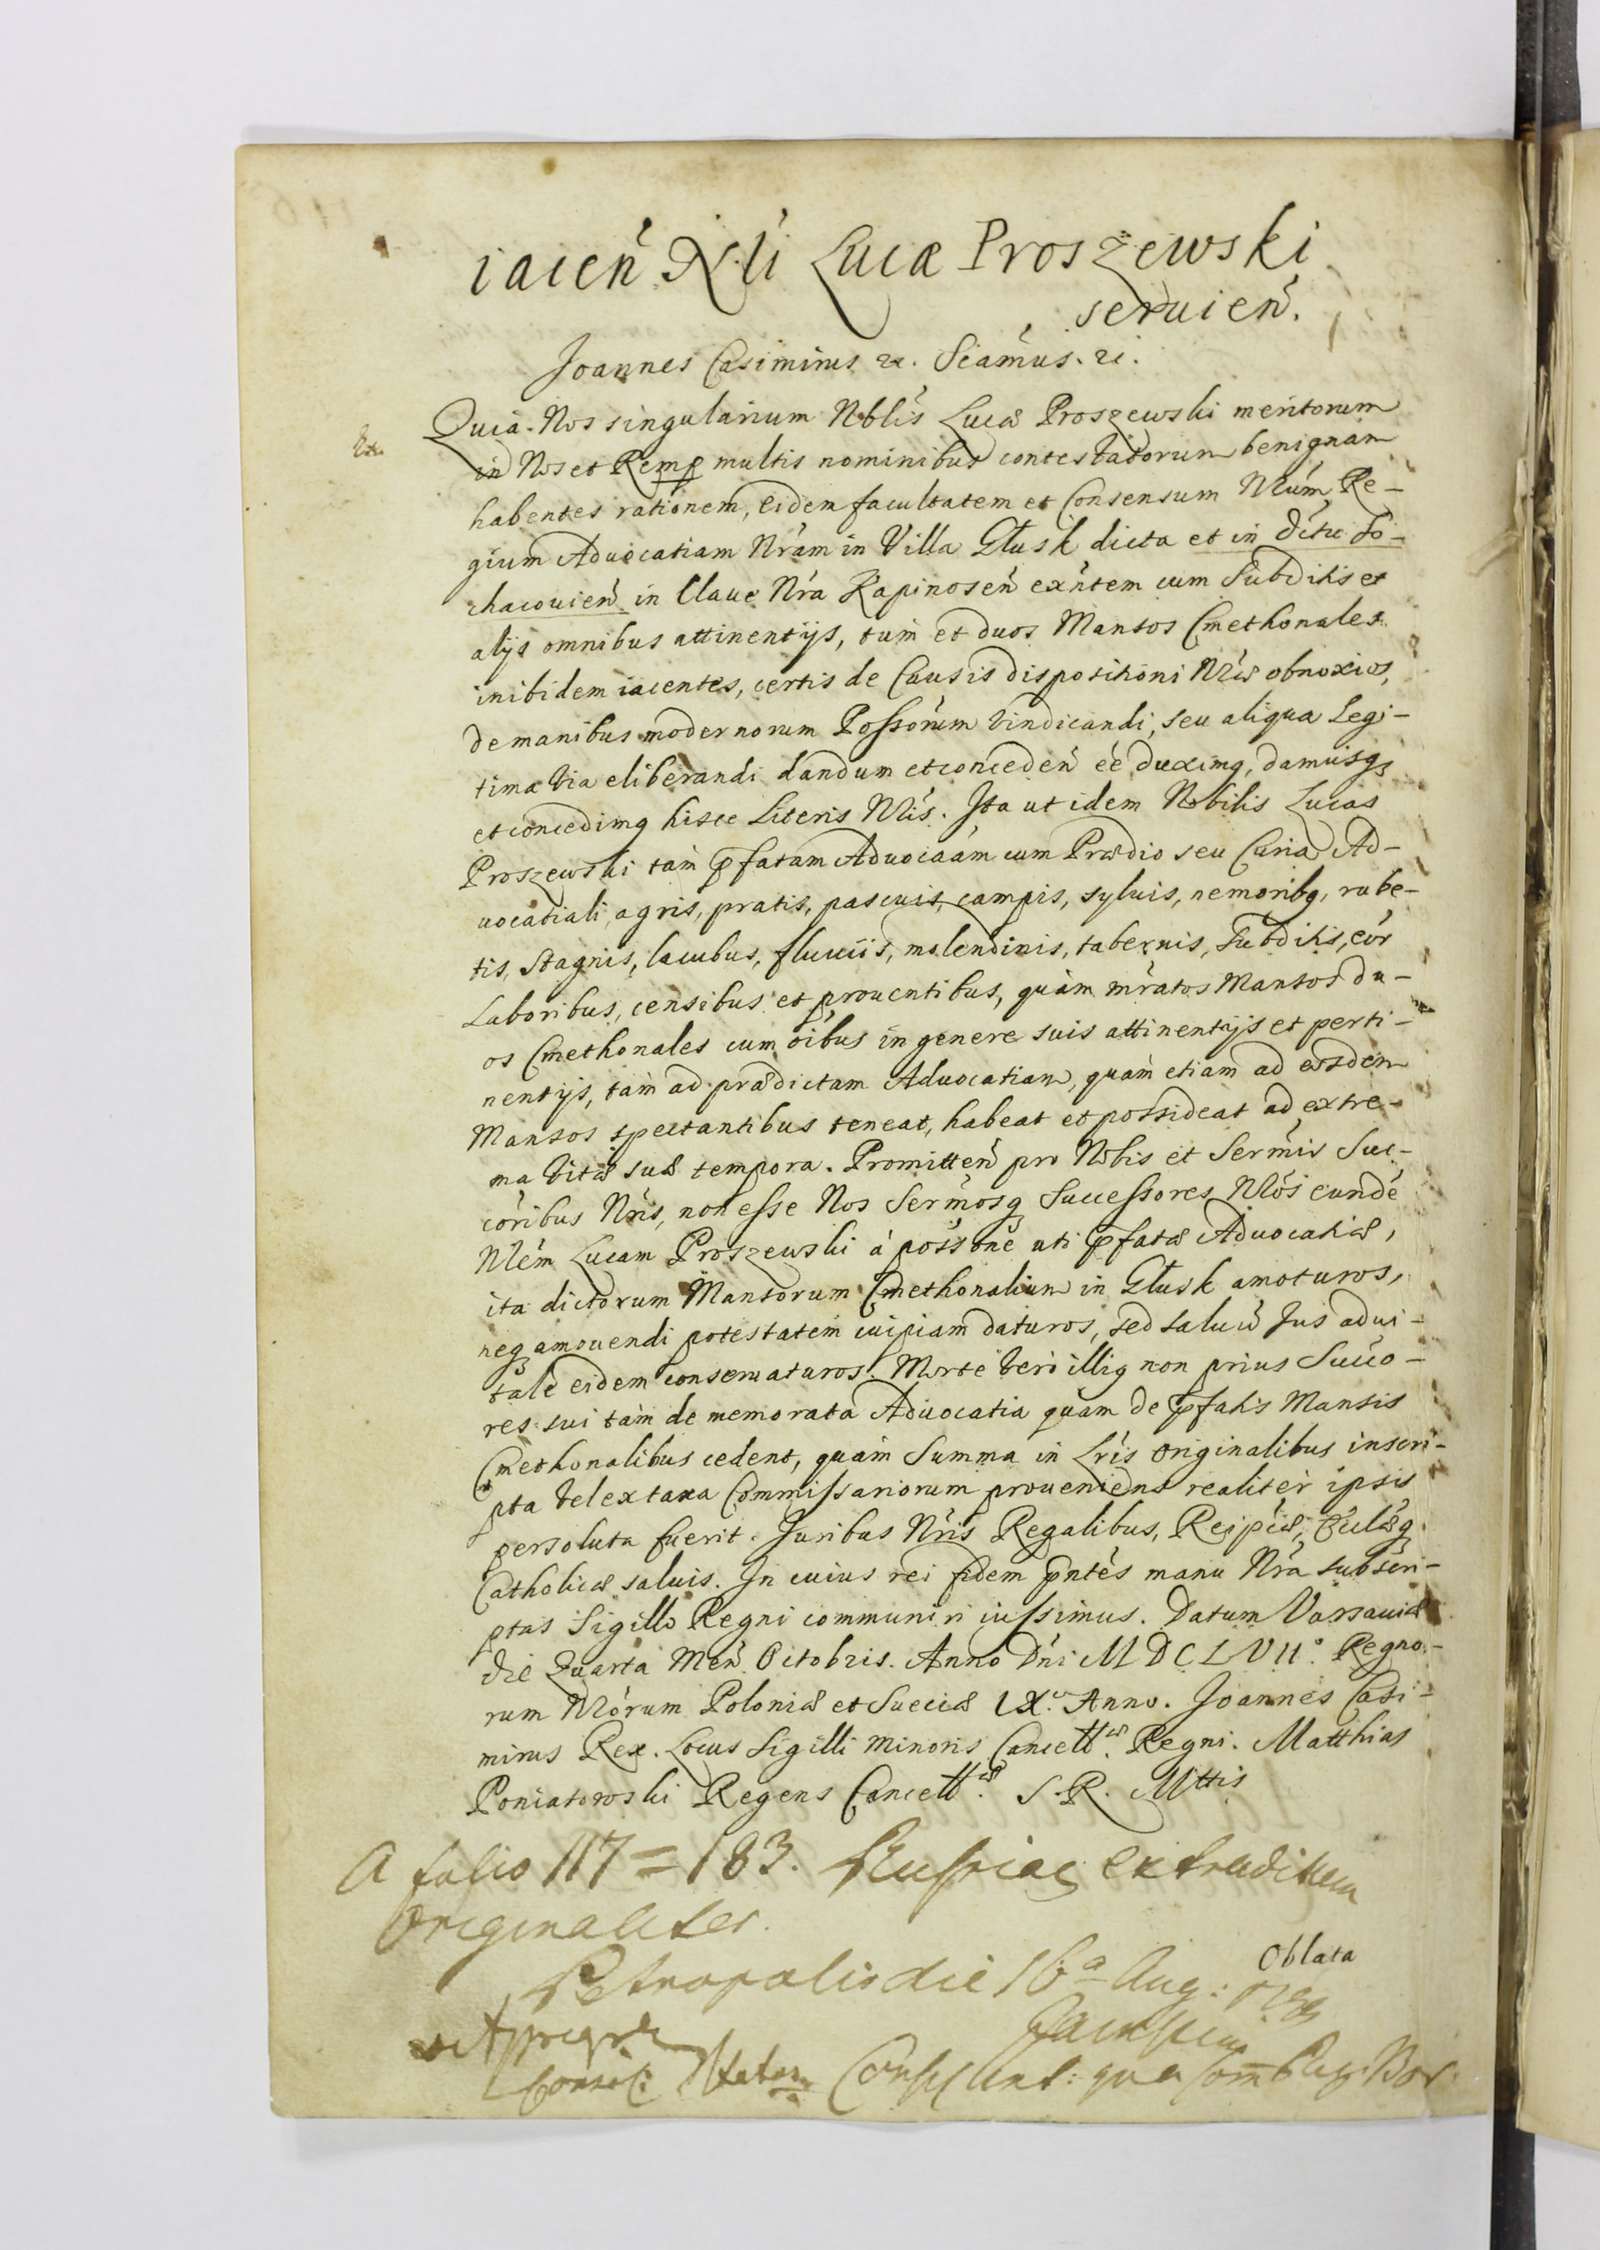 iacen̄ Nli Lucæ Proszewski
seruien̄.
Joannes Casimirus &c. Sciāmus. &c.
Quia Nos singularium Nblis Lucæ Proszewski meritorum
in Nos et Remp multis nominibus contestatorum benignam
habentes rationem, Eidem facultatem et Consensum Nrūm Re-
gium Aduocatiam Nrām in Villa Głusk dicta et in Dittu So-
chacouien̄ in Claue Nrā Kapinosen̄ exn̄tem cum Subditis et
alijs omnibus attinentijs, tum et duos Mansos Cmethonales
inibidem iacentes, certis de Causis dispositioni Nrǣ obnoxios,
de manibus modernorum Possorūm vindicandi, seu aliqua Legi-
tima via eliberandi dandum et conceden̄ eē duximq, damusq
et concedimq hisce Literis Nrīs. Ita ut idem Nobilis Lucas
Proszewski tam pfatam Aduocaām cum Prædio seu Curia Ad-
uocatiali, agris, pratis, pascuis, campis, syluis, nemoribq, rube-
tis, Stagnis, lacubus, fluuiis, molendinis, tabernis, Subditis, eōr
Laboribus, censibus et prouentibus, quàm mrātos Mansos du-
os Cmethonales cum oībus in genere suis attinentijs et perti-
nentijs, tàm ad prædictam Aduocatiam, quàm etiam ad eosdem
Mansos spectantibus teneat, habeat et possideat ad extre-
ma vitæ suæ tempora. Promitten̄ pro Nobis et Sermīs Suc-
cōribus Nrīs, non esse Nos Sermōsq Successores Nrōs eundē
Nlēm Lucam Proszewski à possonē uti pfatæ Aduocatiæ,
ita dictorum Mansorum Cmethonalium in Głusk amoturos,
neq amouendi potestatem cuipiam daturos, sed saluū Jus adui-
tale eidem conseruaturos. Morte verò illiq non prius Succo-
res sui tàm de memorata Aduocatia quàm de pfatis Mansis
Cmethonalibus cedent, quàm Summa in Lrīs originalibus inscri-
pta vel ex taxa Commissariorum proueniens realiter ipsis
persoluta fuerit. Juribus Nrīs Regalibus, Reipcǣ, Ecclǣq
Catholicæ saluis. In cuius rei fidem pn̄tes manu Nrā subscri-
ptas Sigillo Regni communiri iussimus. Datum Varsauiæ
die Quarta Men̄ Octobris. Anno Dn̄i MDCLVII° Regno-
rum Nrōrum Poloniæ et Sueciæ IX° Anno. Joannes Casi-
mirus Rex. Locus Sigilli Minoris Cancellæ. Regni. Matthias
Poniatowski Regens Cancellæ. S.R. Mttis
A folio 117 = 183. Russiae extraditum
Originaliter.
Oblata
Petropolis die 16a Aug: